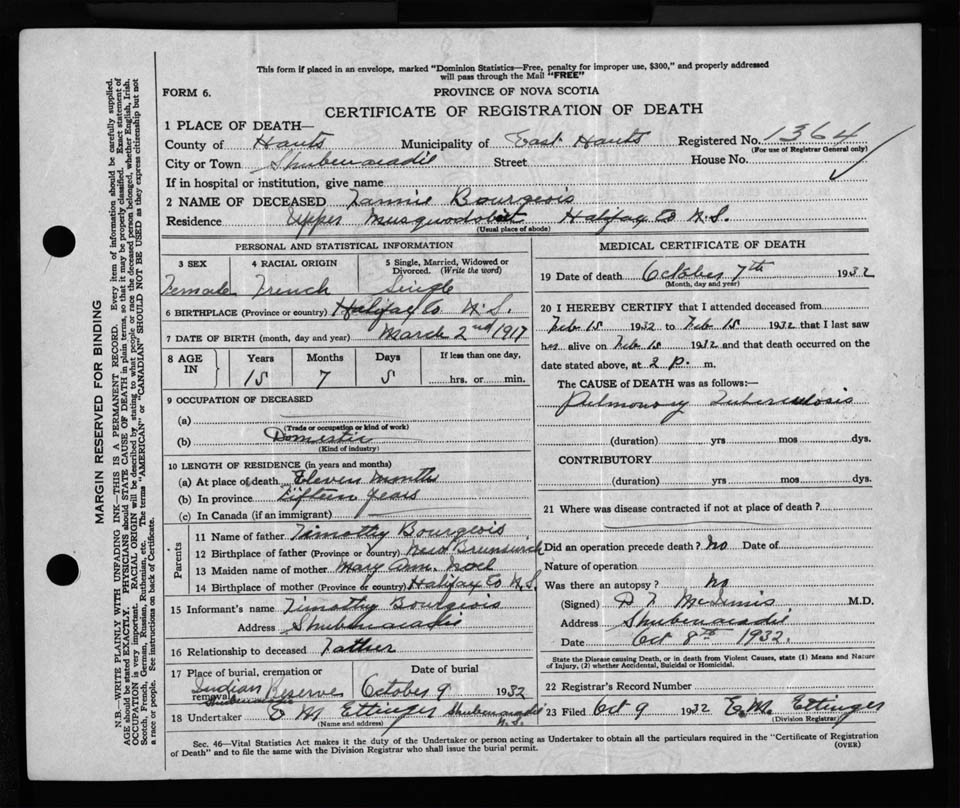 This form if placed in an envelope, marked "Dominion Statistics—Free, penalty for improper use, $300," and properly addressed
will pass through the Mail "FREE"
FORM 6.
PROVINCE OF NOVA SCOTIA
CERTIFICATE OF REGISTRATION OF DEATH
1 PLACE OF DEATH—
County of Hants Municipality of East Hants Registered No. 1364
(For use of Registrar General only)
City or Town Shubenacadie Street House No.
If in hospital or institution, give name
2 NAME OF DECEASED Bourgeois
Residence Upper Musquodoboit Halifax Co N.S.
(Usual place of abode)
PERSONAL AND STATISTICAL INFORMATION
3 SEX 4 RACIAL ORIGIN 5 Single, Married, Widowed or
Divorced. (Write the word)
Female French Single
6 BIRTHPLACE (Province or country) Halifax Co N.S.
7 DATE OF BIRTH (month, day and year) March 2nd 1917
8 AGE IN Years Months Days If less than one day,
15 7 5 hrs. or min.
9 OCCUPATION OF DECEASED
(a)
(Trade or occupation or kind of work)
(b) Domestic
(Kind of industry)
10 LENGTH OF RESIDENCE (in years and months)
(a) At place of death Eleven Months
(b) In province Fifteen years
(c) In Canada (if an immigrant)
Parents
11 Name of father Timothy Bourgeois
12 Birthplace of father (Province or country) New Brunswick
13 Maiden name of mother Mary Ann
14 Birthplace of mother (Province or country) Halifax Co N.S.
15 Informant's name Timothy Bourgeois
Address Shubenacadie
16 Relationship to deceased Father
17 Place of burial, cremation or removal Date of burial
Indian Reserve October 9 1932
Shubenacadie
18 Undertaker E M Ettinger Shubenacadie N.S.
(Name and address)
MEDICAL CERTIFICATE OF DEATH
19 Date of death October 7th 1932
(Month, day and year)
20 I HEREBY CERTIFY that I attended deceased from
Feb 15 1932 to Feb 15 1932 that I last saw
her alive on Feb 15 1932 and that death occurred on the
date stated above, at 2 p. m.
The CAUSE of DEATH was as follows:—
Pulmonary Tuberculosis
(duration) yrs mos dys.
CONTRIBUTORY
(duration) yrs mos dys.
21 Where was disease contracted if not at place of death?
Did an operation precede death? No Date of
Nature of operation
Was there an autopsy? No
(Signed) M.D.
Address Shubenacadie
Date Oct 8th 1932.
State the Disease causing Death, or in death from Violent Causes, state (1) Means and Nature
of Injury, (2) whether Accidental, Suicidal or Homicidal.
22 Registrar's Record Number
23 Filed Oct 9 1932 E. M. Ettinger
(Division Registrar)
Sec. 46—Vital Statistics Act makes it the duty of the Undertaker or person acting as Undertaker to obtain all the particulars required in the "Certificate of Registration
of Death" and to file the same with the Division Registrar who shall issue the burial permit.
(OVER)
MARGIN RESERVED FOR BINDING
N.B.—WRITE PLAINLY WITH UNFADING INK—THIS IS A PERMANENT RECORD. Every item of information should be carefully supplied.
AGE should be stated EXACTLY. PHYSICIANS should STATE CAUSE OF DEATH in plain terms, so that it may be properly classified. Exact statement of
OCCUPATION is very important. RACIAL ORIGIN will be described by stating to what people or race the deceased person belonged, whether English, Irish,
Scotch, French, German, Russian, Ruthenian, etc. The terms "AMERICAN" or "CANADIAN" SHOULD NOT BE USED as they express citizenship but not
a race or people. See instructions on back of Certificate.